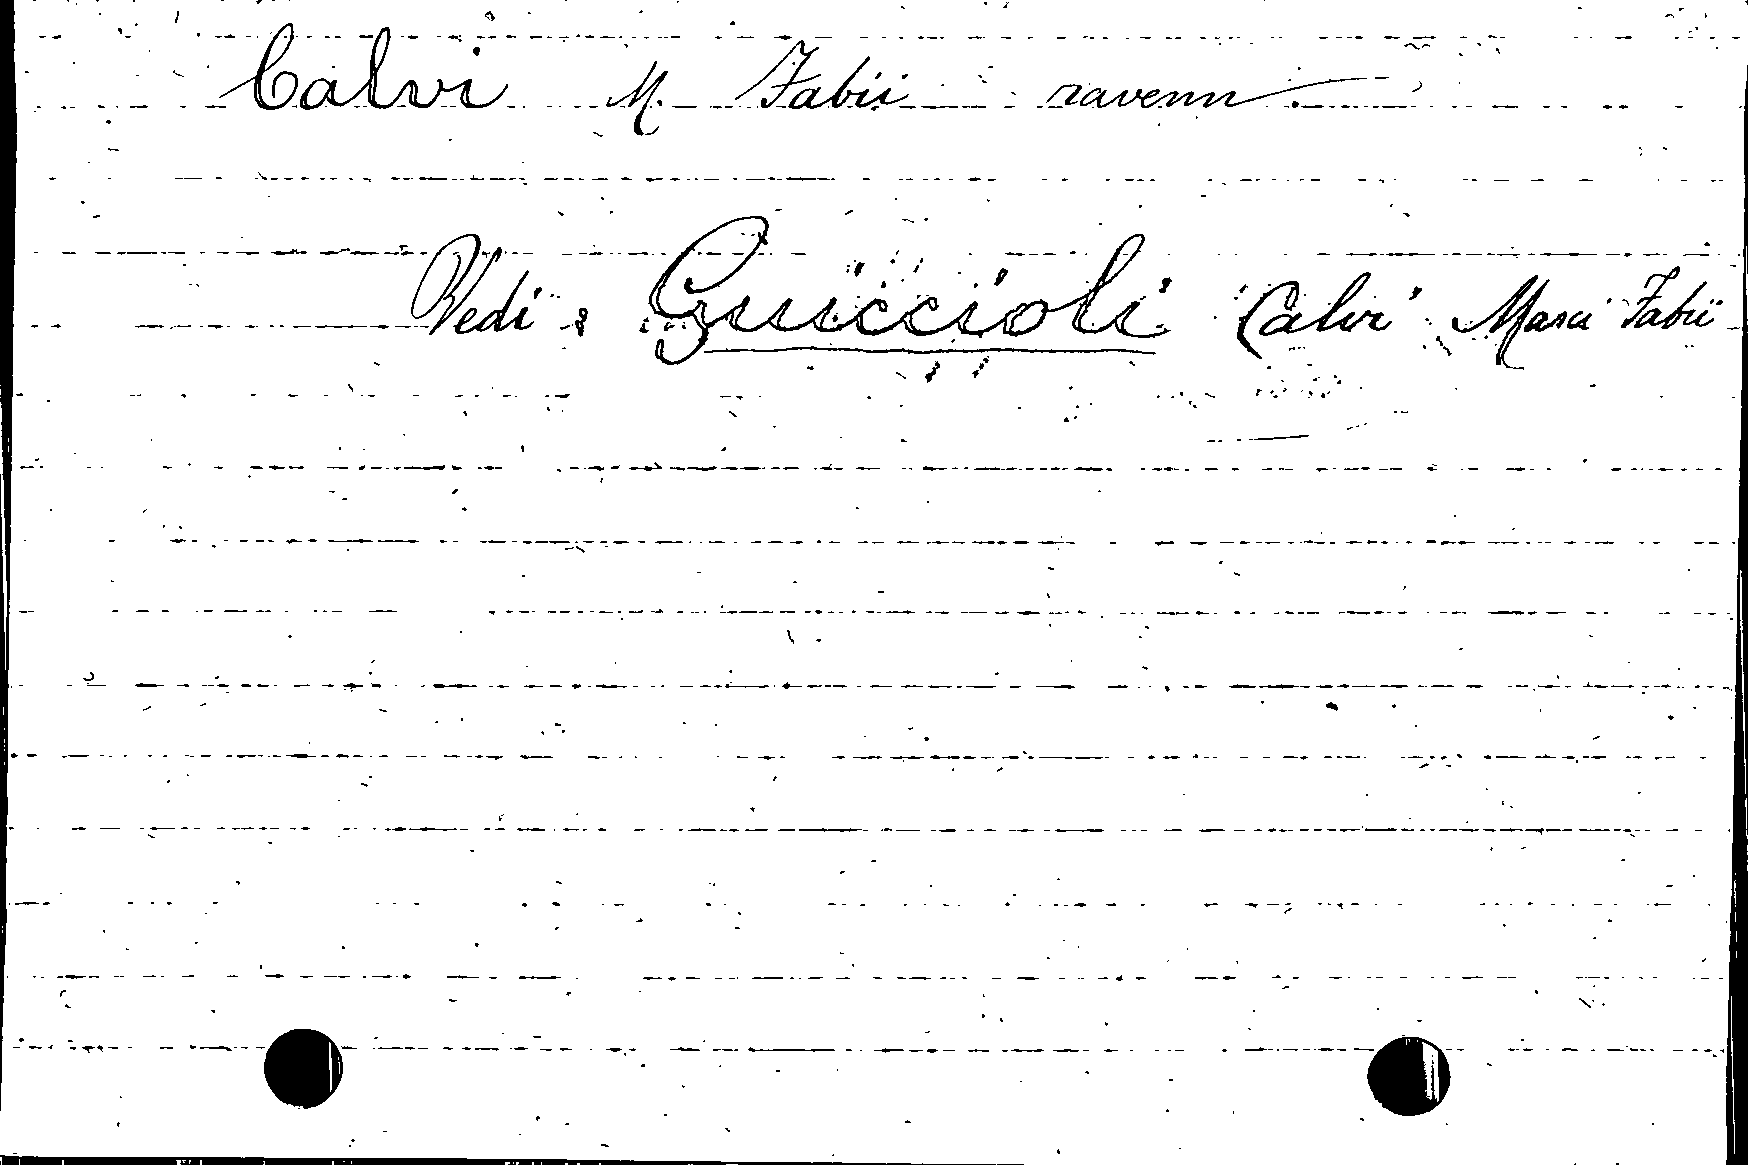 Calvi M. Fabii ravenn
Vedi : Guiccioli Calvi Marci Fabii